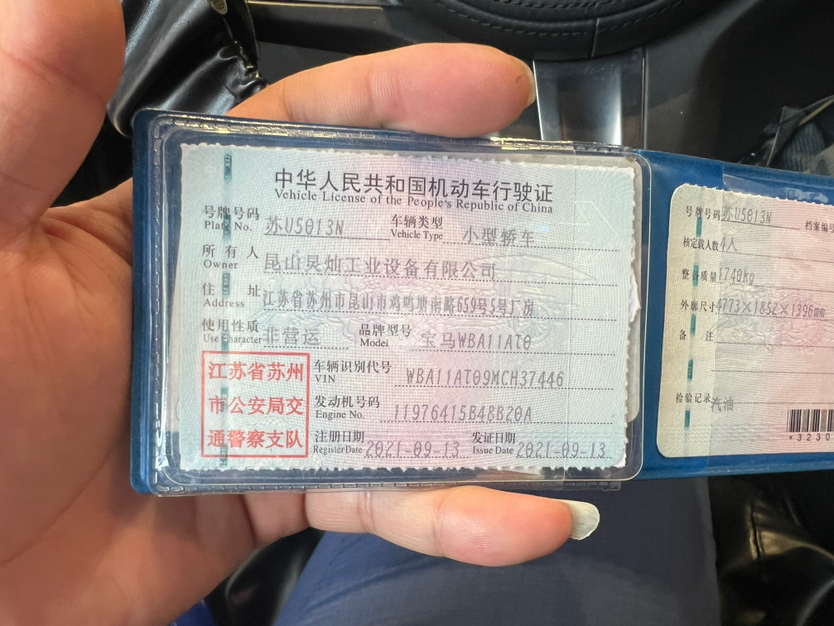 中华人民共和国机动车行驶证
Vehicle License of the People's Republic of China
号牌号码 苏U5013N 车辆类型 小型轿车
Plate No. Vehicle Type
所有人 昆山炅灿工业设备有限公司
Owner
住址 江苏省苏州市昆山市鸡鸣塘南路659号5号厂房
Address
使用性质 非营运 品牌型号 宝马WBA11AT0
Use Character Model
江苏省苏州
市公安局交
通警察支队
车辆识别代号 WBA11AT09MCH37446
VIN
发动机号码 11976415B48B20A
Engine No.
注册日期 2021-09-13 发证日期 2021-09-13
Register Date Issue Date
号牌号码 苏U5013N 档案编号
核定载人数 4人
整备质量 1740kg
外廓尺寸 4773×1852×1396
备注
检验记录 汽油
*3230